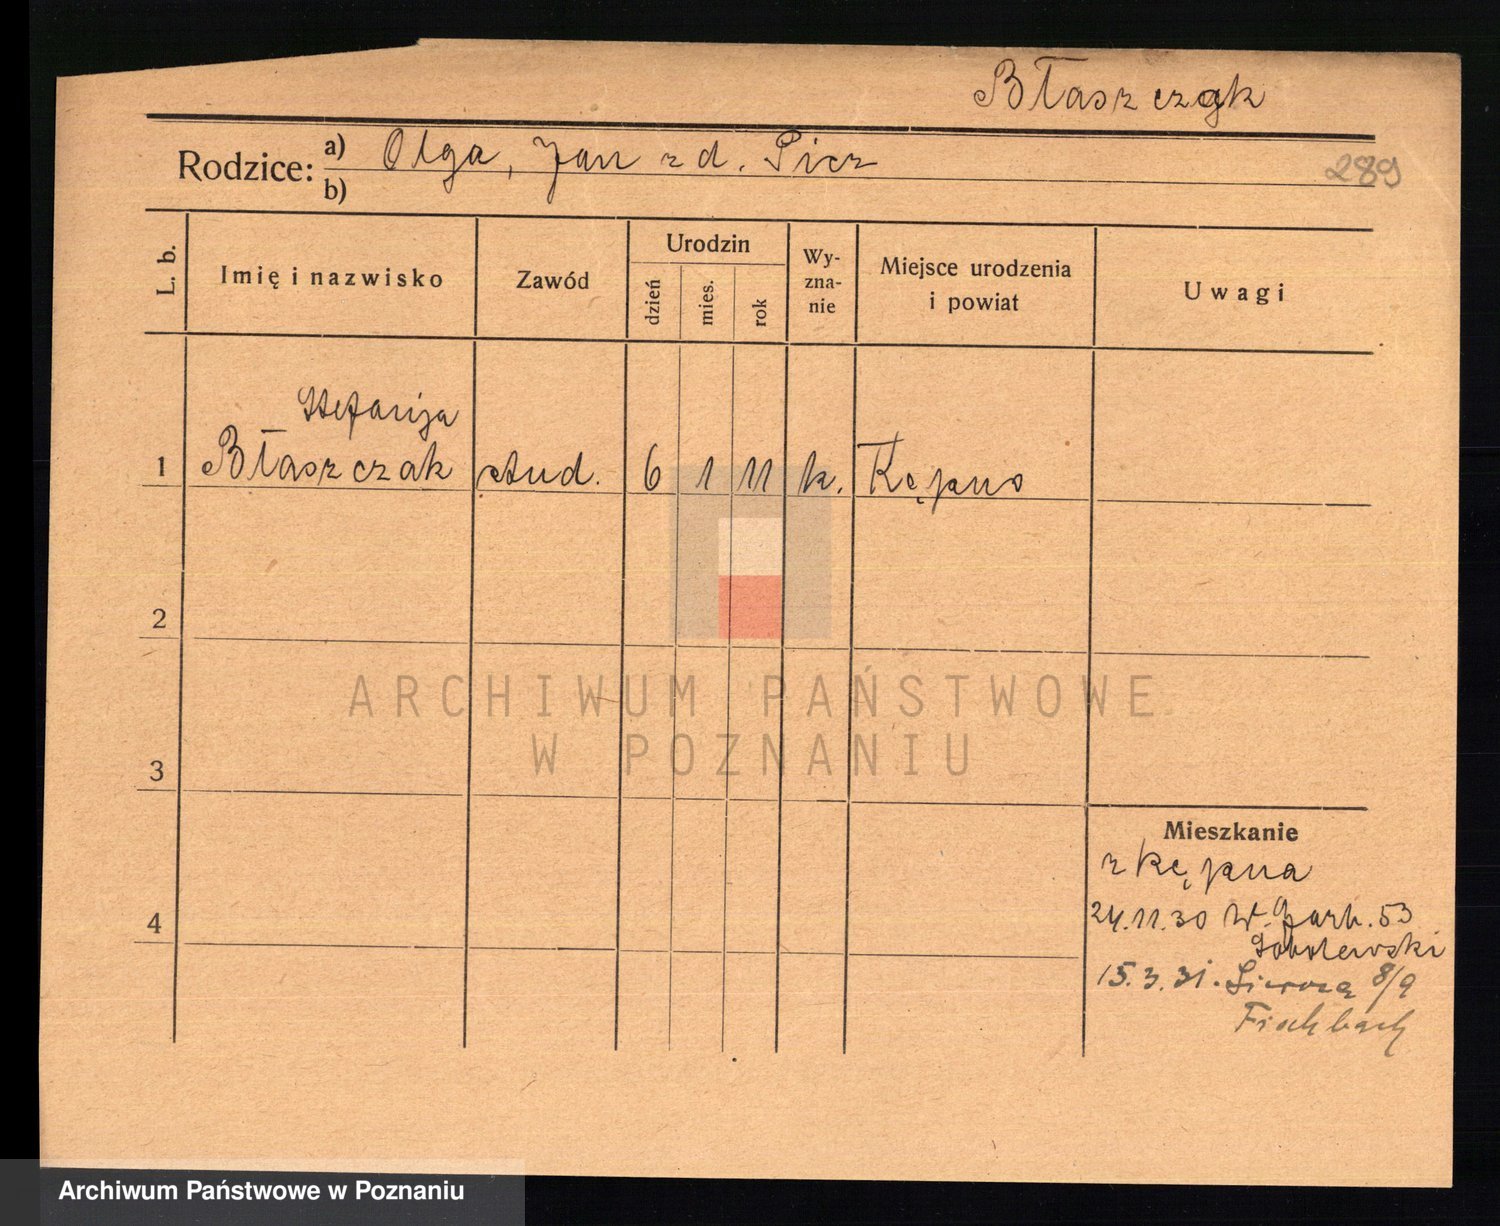 Błaszczyk
Rodzice: a) Olga, Jan z d. Picz
b)
289
L. b.
Imię i nazwisko
Zawód
Urodzin
dzień
mies.
rok
Wy-
zna-
nie
Miejsce urodzenia
i powiat
Uwagi
Stefanja
1 Błaszczak stud. 6 1 11 k. Kępno
2
3
4
Mieszkanie
z Kępna
24.11.30 W. Garb. 53
Sobolewski
15.3.31. 8/9
Fischbach
ARCHIWUM PAŃSTWOWE
W POZNANIU
Archiwum Państwowe w Poznaniu